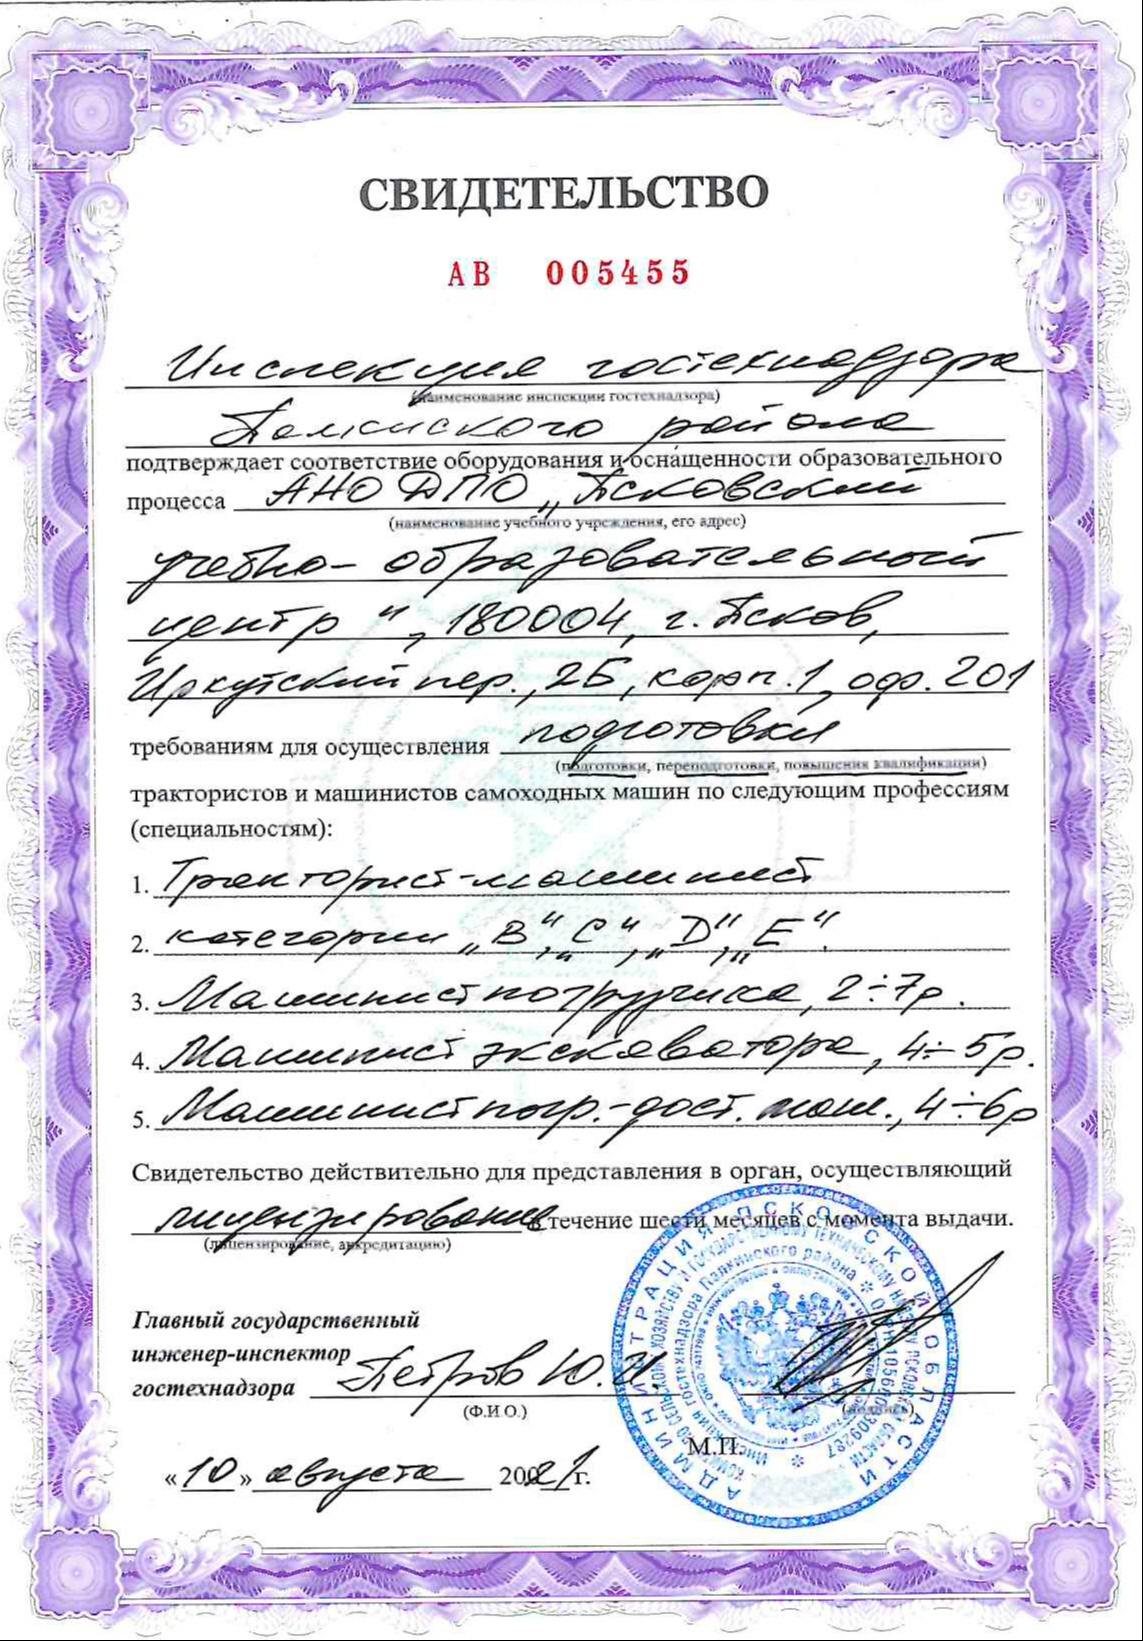 СВИДЕТЕЛЬСТВО
АВ 005455
Инспекция гостехнадзора
(наименование инспекции гостехнадзора)
Палкинского района
подтверждает соответствие оборудования и оснащенности образовательного
процесса АНО ДПО „Псковский
(наименование учебного учреждения, его адрес)
учебно-образовательный
центр", 180004, г. Псков,
Иркутский пер., 2Б, корп. 1, оф. 201
требованиям для осуществления подготовки
(подготовки, переподготовки, повышения квалификации)
трактористов и машинистов самоходных машин по следующим профессиям
(специальностям):
1. Тракторист-машинист
2. категории „В", „С", „D", „Е".
3. Машинист погрузчика, 2÷7р.
4. Машинист экскаватора, 4÷5р.
5. Машинист погр.-дост. маш., 4÷6р
Свидетельство действительно для представления в орган, осуществляющий
лицензирование в течение шести месяцев с момента выдачи.
(лицензирование, аккредитацию)
Главный государственный
инженер-инспектор
гостехнадзора Петров Ю.И.
(Ф.И.О.)
(подпись)
М.П.
«10» августа 2021г.
АДМИНИСТРАЦИЯ ПСКОВСКОЙ ОБЛАСТИ
Инспекция гостехнадзора Палкинского района